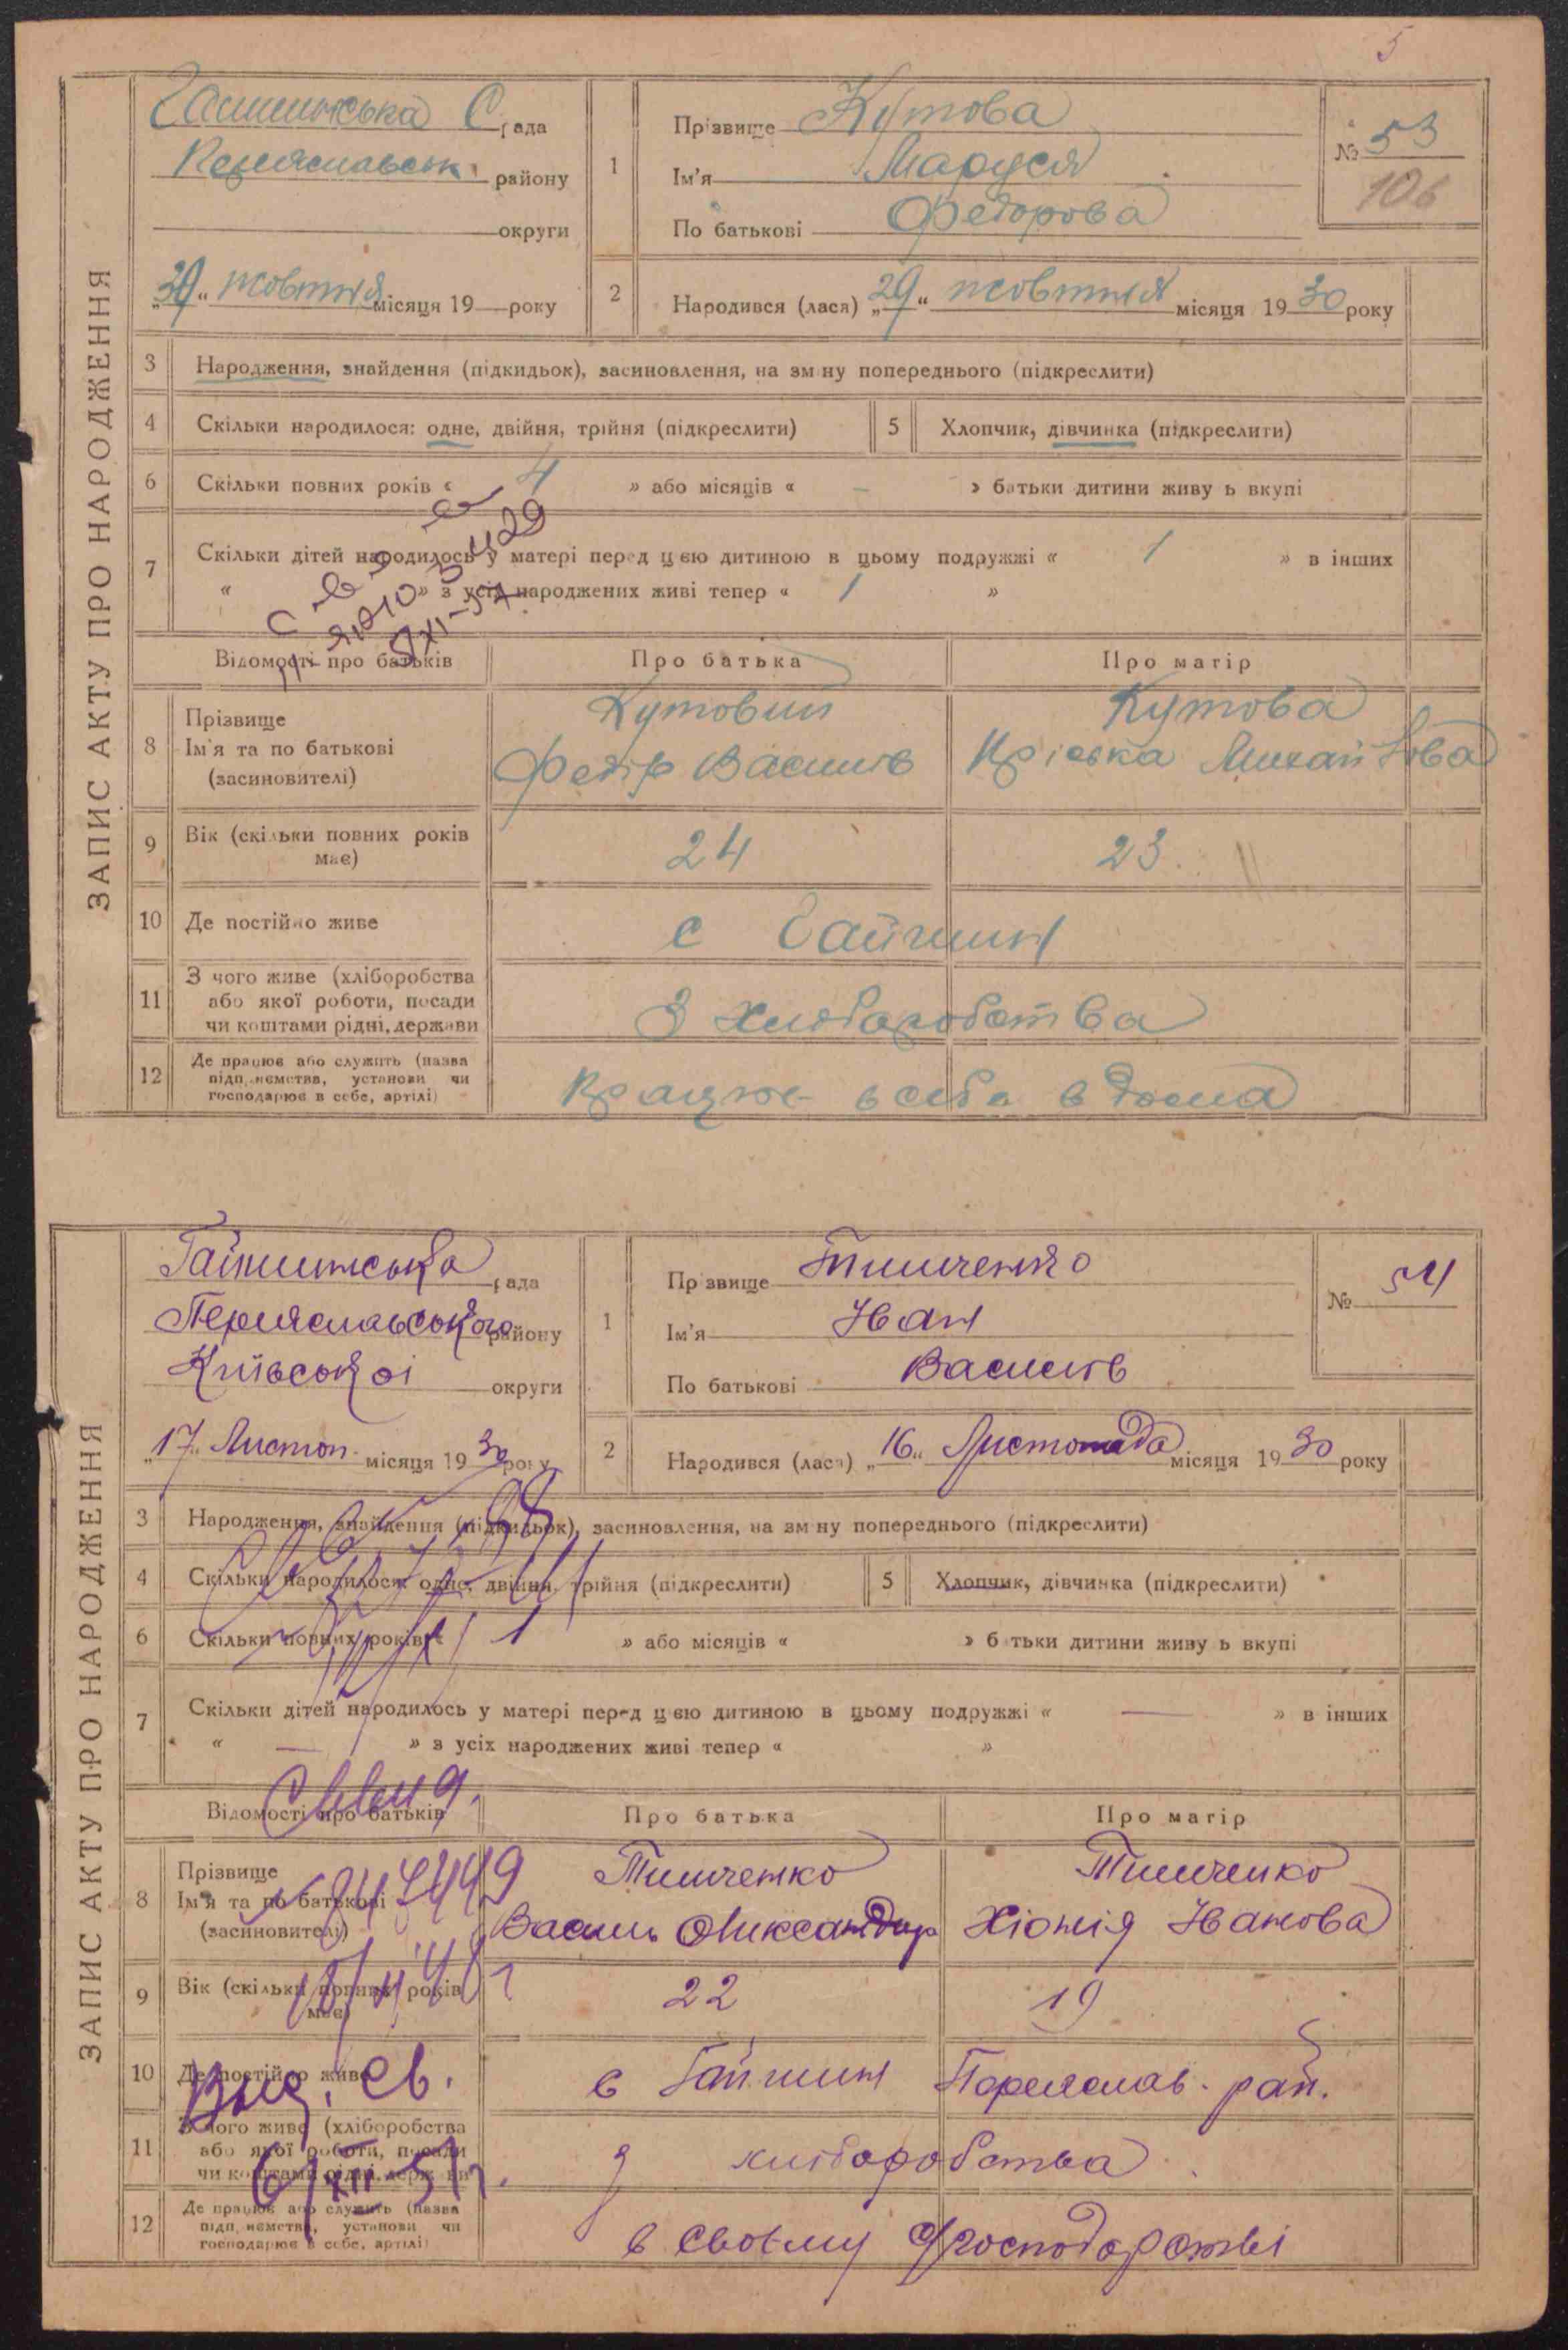 5
ЗАПИС АКТУ ПРО НАРОДЖЕННЯ
Гайшинська С рада
Переяславськ району
округи
"30" жовтня місяця 19 року
1
Прізвище Кутова
Ім'я Маруся
По батькові Федорова
№ 53
106
2
Народився (лася) "29" жовтня місяця 1930 року
3 Народження, знайдення (підкидьок), засиновлення, на зміну попереднього (підкреслити)
4 Скільки народилося: одне, двійня, трійня (підкреслити)
5 Хлопчик, дівчинка (підкреслити)
6 Скільки повних років « 4 » або місяців « – » батьки дитини живуть вкупі
7 Скільки дітей народилось у матері перед цією дитиною в цьому подружжі « 1 » в інших
« » з усіх народжених живі тепер « 1 »
Відомості про батьків
Про батька
Про матір
8 Прізвище
Ім'я та по батькові
(засиновителі)
Кутовий
Федір Васильів
Кутова
Пріська Михайлова
9 Вік (скільки повних років має)
24
23
10 Де постійно живе
с Гайшин
11 З чого живе (хліборобства
або якої роботи, посади
чи коштами рідні, держави
З хліборобства
12 Де працює або служить (назва
підприємства, установи чи
господарює в себе, артілі)
Працює в себе в дома
ЗАПИС АКТУ ПРО НАРОДЖЕННЯ
Гайшинська рада
Переяславського району
Київської округи
"17" Листоп. місяця 1930 року
1
Прізвище Тимченко
Ім'я Іван
По батькові Васильів
№ 54
2
Народився (лася) "16" Листопада місяця 1930 року
3 Народження, знайдення (підкидьок), засиновлення, на зміну попереднього (підкреслити)
4 Скільки народилося: одне, двійня, трійня (підкреслити)
5 Хлопчик, дівчинка (підкреслити)
6 Скільки повних років « 1 » або місяців « » батьки дитини живуть вкупі
7 Скільки дітей народилось у матері перед цією дитиною в цьому подружжі « — » в інших
« — » з усіх народжених живі тепер « »
Відомості про батьків
Про батька
Про матір
8 Прізвище
Ім'я та по батькові
(засиновителі)
Тимченко
Василь Олександр
Тимченко
Хіонія Іванова
9 Вік (скільки повних років має)
22
19
10 Де постійно живе
с Гайшин Переяслав. рай.
11 З чого живе (хліборобства
або якої роботи, посади
чи коштами рідні, держави
З хліборобства
12 Де працює або служить (назва
підприємства, установи чи
господарює в себе, артілі)
в своєму господарстві
Выд. св.
6/XII-51г.